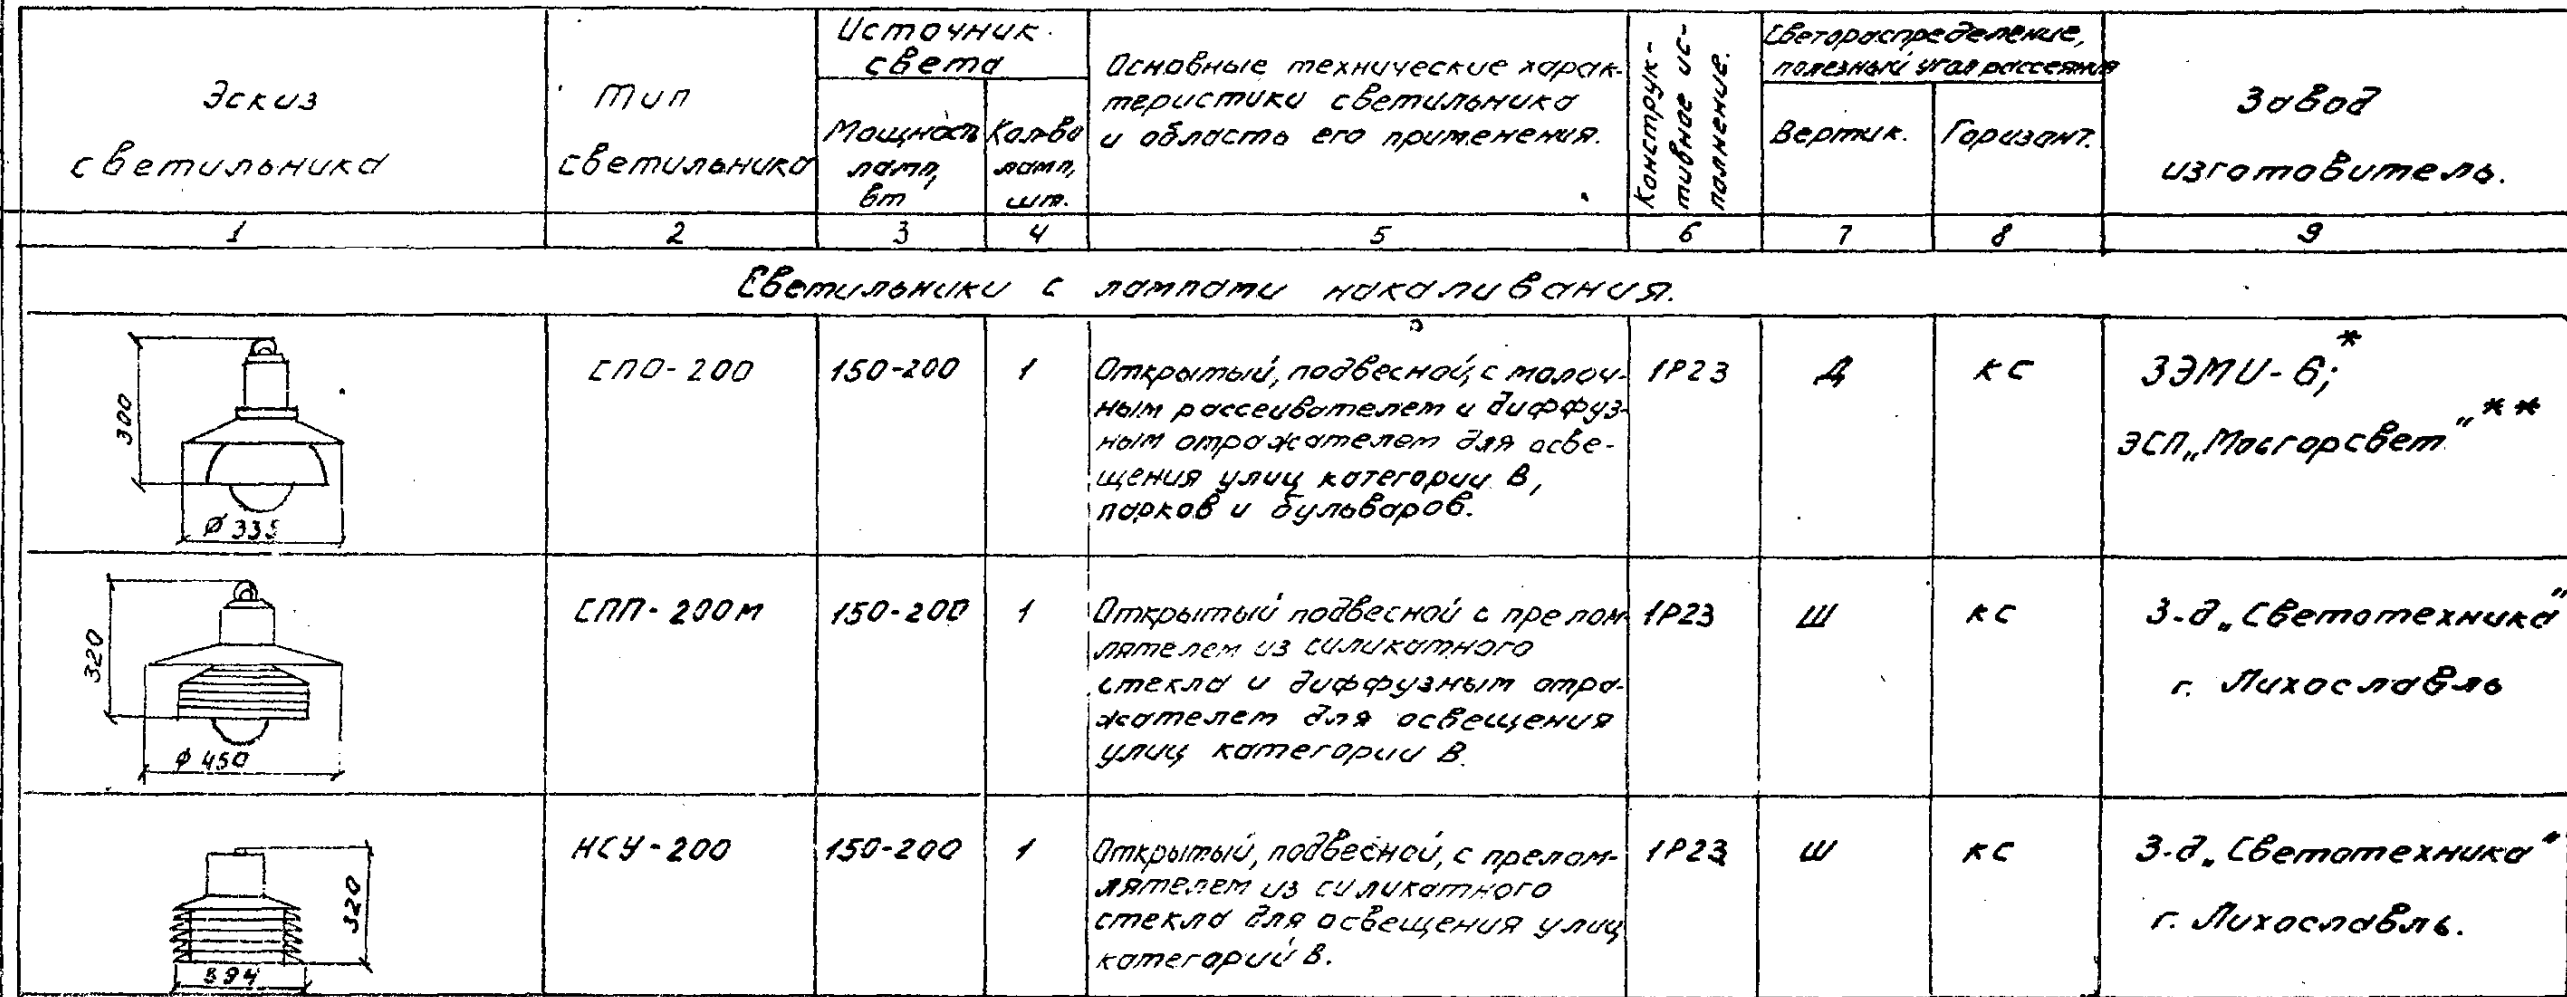 Эскиз
светильника
Тип
светильника
Источник
света
Мощность
ламп,
вт
Кол-во
ламп,
шт.
Основные технические харак-
теристики светильника
и область его применения.
Конструк-
тивное ис-
полнение.
Светораспределение,
полезный угол рассеяния
Вертик.
Горизонт.
Завод
изготовитель.
1 2 3 4 5 6 7 8 9
Светильники с лампами накаливания.
300
Ø 335
СПО-200
150-200
1
Открытый, подвесной, с молоч-
ным рассеивателем и диффуз-
ным отражателем для осве-
щения улиц категории В,
парков и бульваров.
1Р23
Д
КС
ЗЭМИ-6;*
ЭСП „Мосгорсвет"**
320
ϕ 450
СПП-200М
150-200
1
Открытый подвесной с прелом-
лятелем из силикатного
стекла и диффузным отра-
жателем для освещения
улиц категории В.
1Р23
Ш
КС
З-д „Светотехника"
г. Лихославль
320
394
НСУ-200
150-200
1
Открытый, подвесной, с прелом-
лятелем из силикатного
стекла для освещения улиц
категорий В.
1Р23
Ш
КС
З-д „Светотехника"
г. Лихославль.